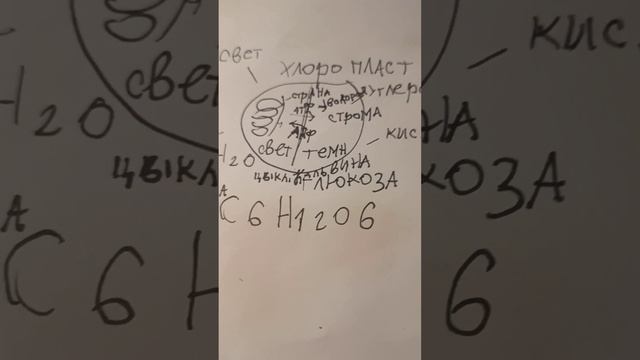 СВЕТ
ХЛОРОПЛАСТ
УГЛЕРО
ВОДОРОД
АТФ
СТРОМА
АДФ
КИС
СВЕТ ТЕМН
H2O
ЦЫКЛ КАЛЬВИНА
ГЛЮКОЗА
C6H12O6